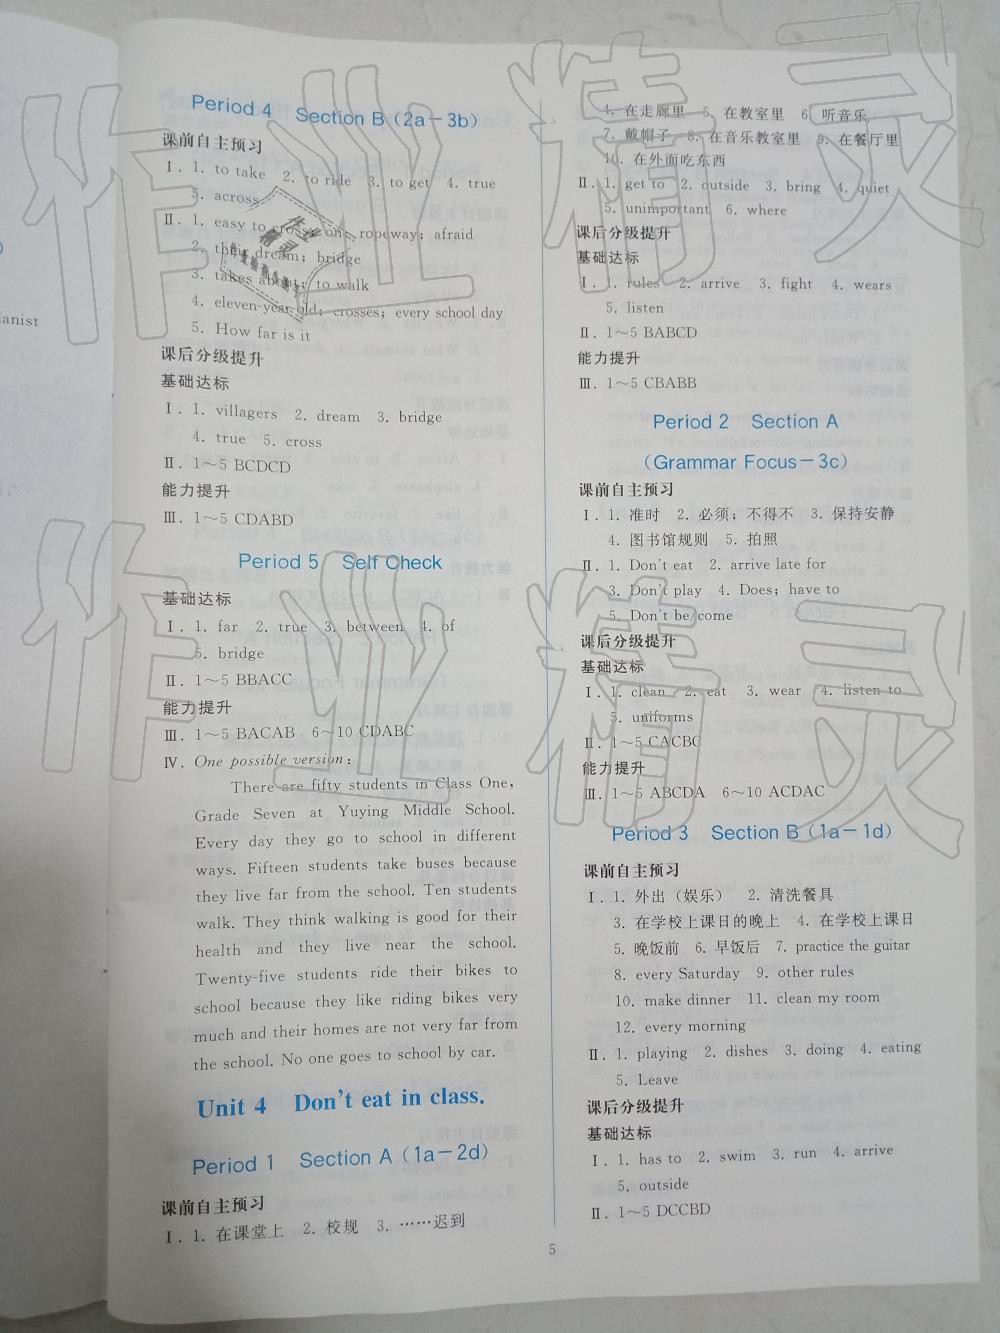 Period 4 Section B（2a－3b）
课前自主预习
Ⅰ. 1. to take 2. to ride 3. to get 4. true
5. across
Ⅱ. 1. easy to cross; on; ropeway; afraid
2. their dream; bridge
3. takes about; to walk
4. eleven-year-old; crosses; every school day
5. How far is it
课后分级提升
基础达标
Ⅰ. 1. villagers 2. dream 3. bridge
4. true 5. cross
Ⅱ. 1～5 BCDCD
能力提升
Ⅲ. 1～5 CDABD
Period 5 Self Check
基础达标
Ⅰ. 1. far 2. true 3. between 4. of
5. bridge
Ⅱ. 1～5 BBACC
能力提升
Ⅲ. 1～5 BACAB 6～10 CDABC
Ⅳ. One possible version:
There are fifty students in Class One,
Grade Seven at Yuying Middle School.
Every day they go to school in different
ways. Fifteen students take buses because
they live far from the school. Ten students
walk. They think walking is good for their
health and they live near the school.
Twenty-five students ride their bikes to
school because they like riding bikes very
much and their homes are not very far from
the school. No one goes to school by car.
Unit 4 Don't eat in class.
Period 1 Section A（1a－2d）
课前自主预习
Ⅰ. 1. 在课堂上 2. 校规 3. ……迟到
4. 在走廊里 5. 在教室里 6. 听音乐
7. 戴帽子 8. 在音乐教室里 9. 在餐厅里
10. 在外面吃东西
Ⅱ. 1. get to 2. outside 3. bring 4. quiet
5. unimportant 6. where
课后分级提升
基础达标
Ⅰ. 1. rules 2. arrive 3. fight 4. wears
5. listen
Ⅱ. 1～5 BABCD
能力提升
Ⅲ. 1～5 CBABB
Period 2 Section A
（Grammar Focus－3c）
课前自主预习
Ⅰ. 1. 准时 2. 必须；不得不 3. 保持安静
4. 图书馆规则 5. 拍照
Ⅱ. 1. Don't eat 2. arrive late for
3. Don't play 4. Does; have to
5. Don't be/come
课后分级提升
基础达标
Ⅰ. 1. clean 2. eat 3. wear 4. listen to
5. uniforms
Ⅱ. 1～5 CACBC
能力提升
Ⅲ. 1～5 ABCDA 6～10 ACDAC
Period 3 Section B（1a－1d）
课前自主预习
Ⅰ. 1. 外出（娱乐） 2. 清洗餐具
3. 在学校上课日的晚上 4. 在学校上课日
5. 晚饭前 6. 早饭后 7. practice the guitar
8. every Saturday 9. other rules
10. make dinner 11. clean my room
12. every morning
Ⅱ. 1. playing 2. dishes 3. doing 4. eating
5. Leave
课后分级提升
基础达标
Ⅰ. 1. has to 2. swim 3. run 4. arrive
5. outside
Ⅱ. 1～5 DCCBD
5
anist
作业精灵
作业精灵